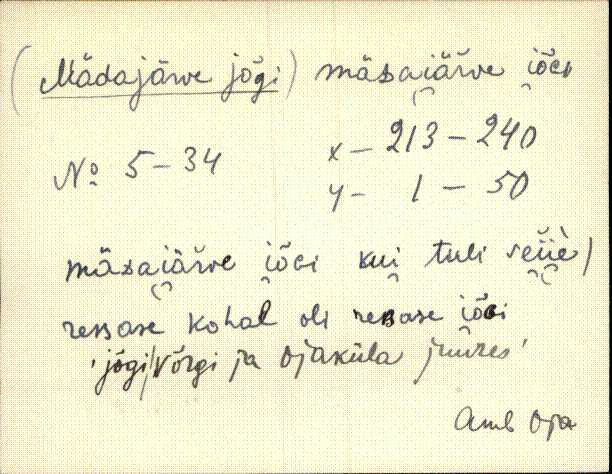 (Mädajärve jõgi) mäᴅai̯ärve i̯õɢi
№ 5–34 x – 213 – 240
y – 1 – 50
mäᴅai̯ärve i̯õɢi kui̯ tuli sei̯i̯è /
reʙase kohal oli reʙase i̯õɢi
'jõgi / Võrgi ja Ojaküla juures'
Amb Oja